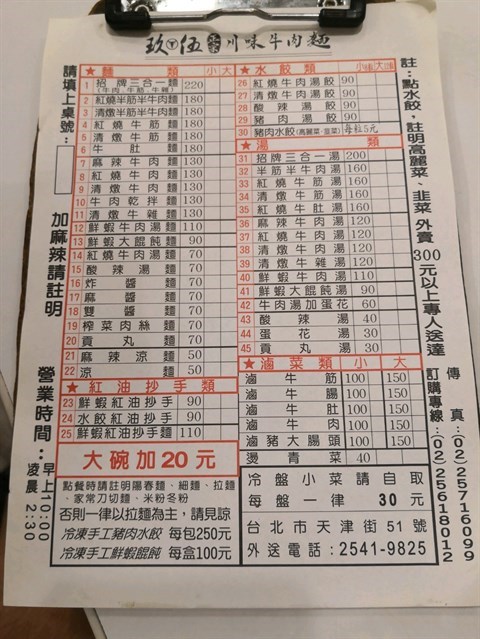 玖伍 川味牛肉麵
請填上桌號：
加麻辣請註明
營業時間：早上10:00 凌晨2:30
★麵類 小 大
1 招牌三合一麵(牛肉、牛筋、牛雜) 220
2 紅燒半筋半牛肉麵 180
3 清燉半筋半牛肉麵 180
4 紅燒牛筋麵 180
5 清燉牛筋麵 180
6 牛肚麵 180
7 麻辣牛肉麵 130
8 紅燒牛肉麵 130
9 清燉牛肉麵 130
10 牛肉乾拌麵 130
11 清燉牛雜麵 130
12 鮮蝦牛肉湯麵 110
13 鮮蝦大餛飩麵 90
14 紅燒牛肉湯麵 70
15 酸辣湯麵 70
16 炸醬麵 70
17 麻醬麵 70
18 雙醬麵 70
19 榨菜肉絲麵 70
20 貢丸麵 70
21 麻辣涼麵 50
22 涼麵 50
★紅油抄手類
23 鮮蝦紅油抄手 90
24 水餃紅油抄手 90
25 鮮蝦紅油抄手麵 110
大碗加20元
點餐時請註明陽春麵、細麵、拉麵
、家常刀切麵、米粉冬粉
否則一律以拉麵為主，請見諒
冷凍手工豬肉水餃 每包250元
冷凍手工鮮蝦餛飩 每盒100元
★水餃類
26 紅燒牛肉湯餃 90
27 清燉牛肉湯餃 90
28 酸辣湯餃 90
29 豬肉湯餃 90
30 豬肉水餃(高麗菜·韮菜) 每粒5元
★湯類
31 招牌三合一湯 200
32 半筋半牛肉湯 160
33 紅燒牛筋湯 160
34 清燉牛筋湯 160
35 紅燒牛肚湯 160
36 麻辣牛肉湯 120
37 紅燒牛肉湯 120
38 清燉牛肉湯 120
39 清燉牛雜湯 120
40 鮮蝦牛肉湯 110
41 鮮蝦大餛飩湯 90
42 牛肉湯加蛋花 60
43 酸辣湯 40
44 蛋花湯 30
45 貢丸湯 30
★滷菜類 小 大
滷牛筋 100 150
滷牛腸 100 150
滷牛肚 100 150
滷牛肉 100 150
滷豬大腸頭 100 150
燙青菜 40
冷盤小菜請自取
每盤一律30元
台北市天津街51號
外送電話：2541-9825
註：點水餃，註明高麗菜、韭菜 外賣300元以上專人送達
訂購專線：(02)25618012
傳真：(02)25716099